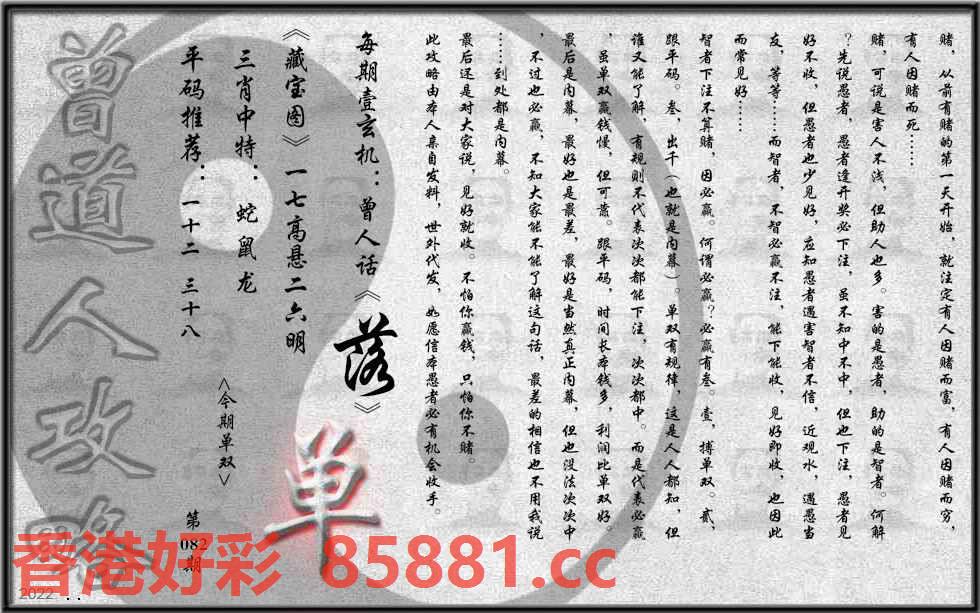 赌，从前有赌的第一天开始，就注定有人因赌而富，有人因赌而穷，
有人因赌而死……
赌，可说是害人不浅，但助人也多。害的是愚者，助的是智者。何解
？先说愚者，愚者逢开奖必下注，虽不知中不中，但也下注，愚者见
好不收，但愚者也少见好，应知愚者遇害智者不信，近观水，遇愚当
友，等等……而智者，不智必赢不注，能下能收，见好即收，也因此
而常见好……
智者下注不算赌，因必赢。何谓必赢？必赢有叁。壹，搏单双。贰，
跟平码。叁，出千（也就是内幕）。单双有规律，这是人人都知，但
谁又能了解，有规则不代表次次都能下注，次次都中。而是代表必赢
，虽单双赢钱慢，但可靠。跟平码，时间长本钱多，利润比单双好。
最后是内幕，最好也是最差，最好是当然真正内幕，但也没法次次中
，不过也必赢，不知大家能不能了解这句话，最差的相信也不用我说
……到处都是内幕。
最后还是对大家说，见好就收。不怕你赢钱，只怕你不赌。
此攻略由本人亲自发料，世外代发，如愿信本愚者必有机会收手。
每期壹玄机：曾人话《落》
《藏宝图》一七高悬二六明
三肖中特：蛇鼠龙
平码推荐：一十二 三十八
<今期单双>
单
第
082
期
曾道人攻略
香港好彩 85881.cc
2022